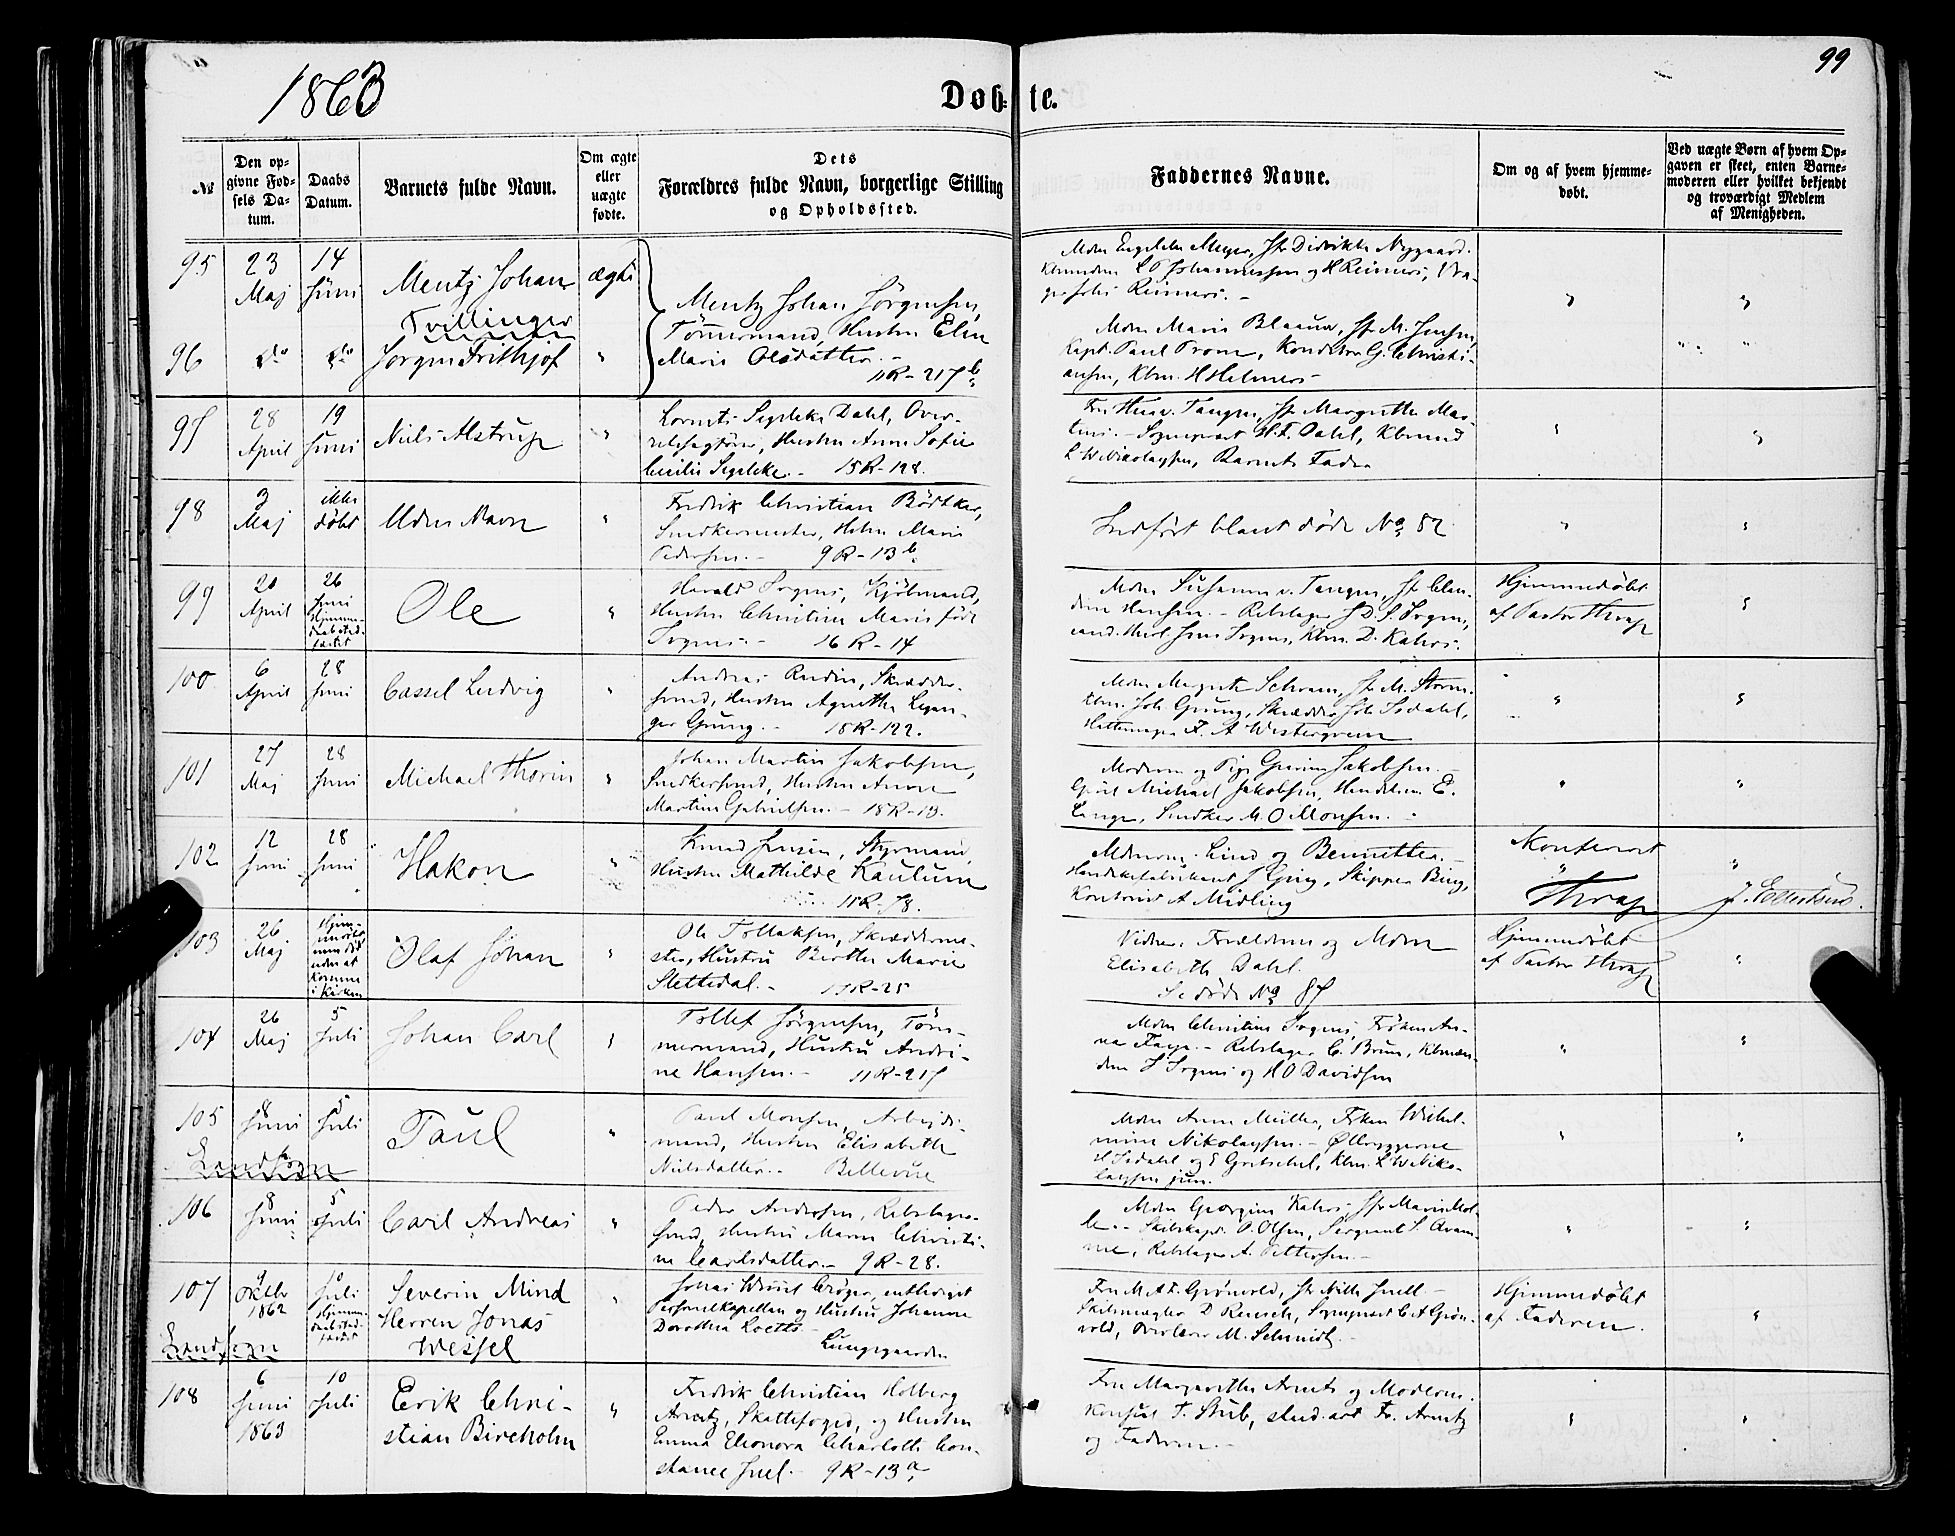 1863
Døb=te.
99
№
Den op-
givne Fød-
sels Da-
tum.
Daabs
Datum.
Barnets fulde Navn.
Om ægte
eller
uægte
fødte.
Dets
Forældres fulde Navn, borgerlige Stilling
og Opholdssted.
Faddernes Navne.
Om og af hvem hjemme-
døbt.
Ved uægte Børn af hvem Op-
gaven er skeet, enten Barne-
moderen eller hvilket bekjendt
og troværdigt Medlem
af Menigheden.
95
23
Maj
14
Juni
Mentz Johan
ægte
Tvillinger
Mentz Johan Jörgensen,
Tömmermand, Hustru Elen
Marie Olsdatter.-
11R-217b
Mdm Engelche Meyer, Jfr Didrikke Nyggaard.
96
do
do
Jörgen Frithjof
"
Mdm Marie Blaauw, Jfr M. Jensen,
Kapt. Paul Trom, Konditor G. Christi-
ansen, Kbm. H Helmers-
97
28
April
19
Juni
Niels Alstrup
"
Dahl, Over-
retssagförer, Hustru Anne Sofie
Cecilie Segelcke.- 15R-128.
Fru Tangen, Jfr Margrethe Mar-
tens.- Sognepræst H.F. Dahl, Kbmand
L W Nikolaysen, Barnets Fader
98
3
Maj
ikke
döbt
Uden Navn
"
Fredrik Christian Bödtker,
Snedkermester, Hstru Marie
Pedersen.- 9R-13b
Indfört blant döde No 82
99
20
April
26
Juni
Hjemme-
daab sted-
fæstet
Ole
"
Harald Irgens, Kjöbmand,
Hustru Christine Marie föd
Irgens.- 16R-14
Mdm Susanne v. Tangen, Jfr Clau-
dine Hansen.- Rebslager J D. S. Irgens,
cand. theol. Jens Irgens, Kbm. D. Kahrs.
Hjemmedöbt
af Pastor Thrap
100
6
April
28
Juni
Cassel Ludvig
"
Andreas Rudin, Skrædder-
svend, Hustru Agnethe Legan-
ger Gjung.- 18R-122.
Mdm Magrete Schram, Jfr M. Storm.
Kbm. Joh. Grung, Skrædder Joh Isdahl,
Hattemager F. A Westergreen
101
27
Maj
28
Juni
Michael Thorin
"
Johan Martin Jakobsen,
Snedkersvend, Hustru Anne
Martine Gabrielsen.- 18R-13.
Moderen og Pige Gurine Jakobsen.-
Michael Jakobsen, Handelsm. E.
Lange, Snedker M. O Monsen.
102
12
Juni
28
Juni
Hakon
"
Knud Jensen, Styrmand,
Hustru Mathilde Kaulum
11R-78.
Mdmme. Lind og Bennetter.-
Handskefabrikant J Gjing, Skipper Bing,
Kontorist A Midling
Konfereret
Thrap
J. Ellertsen.
103
26
Maj
Hjem-
uden at
komme
i Kirken
Olaf Johan
"
Ole Tollaksen, Skrædderme-
ster, Hustru Berthe Marie
Slettedal.- 17R-25
Vidner: Forældrene og Mdm
Elisabeth Dahl.
Se döde No 87
Hjemmedöbt
af Pastor Thrap
104
26
Maj
5
Juli
Johan Carl
"
Tollef Jörgensen, Töm-
mermand, Hustru Andri-
ne Hansen.- 11R-217
Mdm Christine Irgens, Fröken An-
na Faye.- Rebslager C. Brun, Kbmæn-
dene J Irgens og H O Davidsen
105
8
Juni
5
Juli
Paul
"
Landsogn
Paul Monsen, Arbejds-
mand, Hustru Elisabeth
Nielsdatter.- Bellevue
Mdm Anne Müller, Frken Wilhel-
mine Nikolaysen.- Ølbryggerne
H Isdahl og E Gretschel, Kbm. L W Niko-
laysen jun.
106
8
Juni
5
Juli
Carl Andreas
"
Peder Andersen, Rebslager-
svend, Hustru Maren Christi-
ne Carlsdatter.- 9R-28.
Mdm Georgine Kahrs, Jfr Marie Mol-
le.- Skibskapt. O. Olsen, Sergeant
Rebslager A. Pettersen.-
107
9
Oktbr
1862
Juli
Hjemme-
daab sted-
fæstet
Severin Mind
Herren Jonas
Wessel
"
Landsogn
Jonas Wessel Cröger, entlediget
Personelkapellan og Hustru Johanne
Dorothea Koetts-
Lungegaarden
Fru M. A. F. Grönvold, Jfr Nille Juell-
Skibsmægler D Reusch, Sognepræst C. A Grön-
vold, Overlærer M. Schmidt.-
Hjemmedöbt
af Faderen.
108
6
Juni
1863
10
Juli
Erik Chri-
stian Bircholm
"
Fredrik Christian Holberg
Arentz, Skattefoged, og Hustru
Emma Eleonora Charlotte Con-
stance Juel.- 9R-13a
Fru Margarethe Arentz og Moderen.
Konsul F. Stub, stud. art Fr. Arentz
og Faderen.-